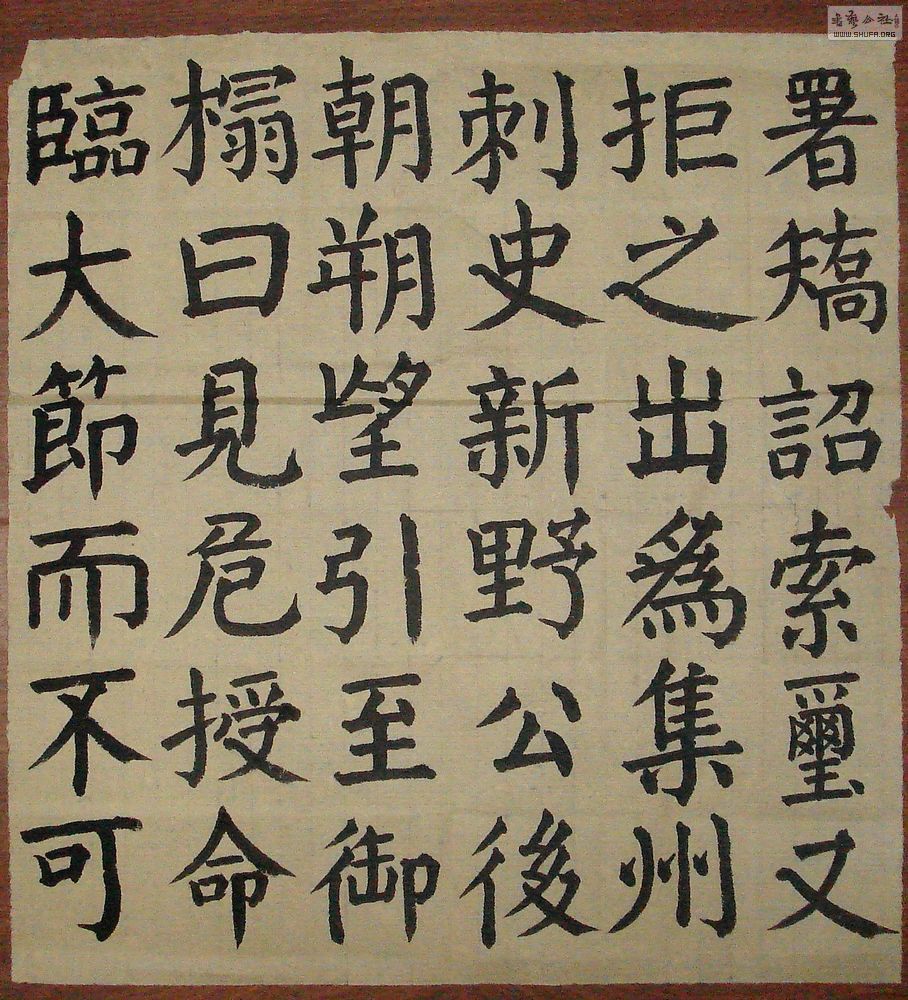 署矯詔索璽又
拒之出為集州
刺史新野公後
朝朔望引至御
榻曰見危授命
臨大節而不可
書藝公社
WWW.SHUFA.ORG